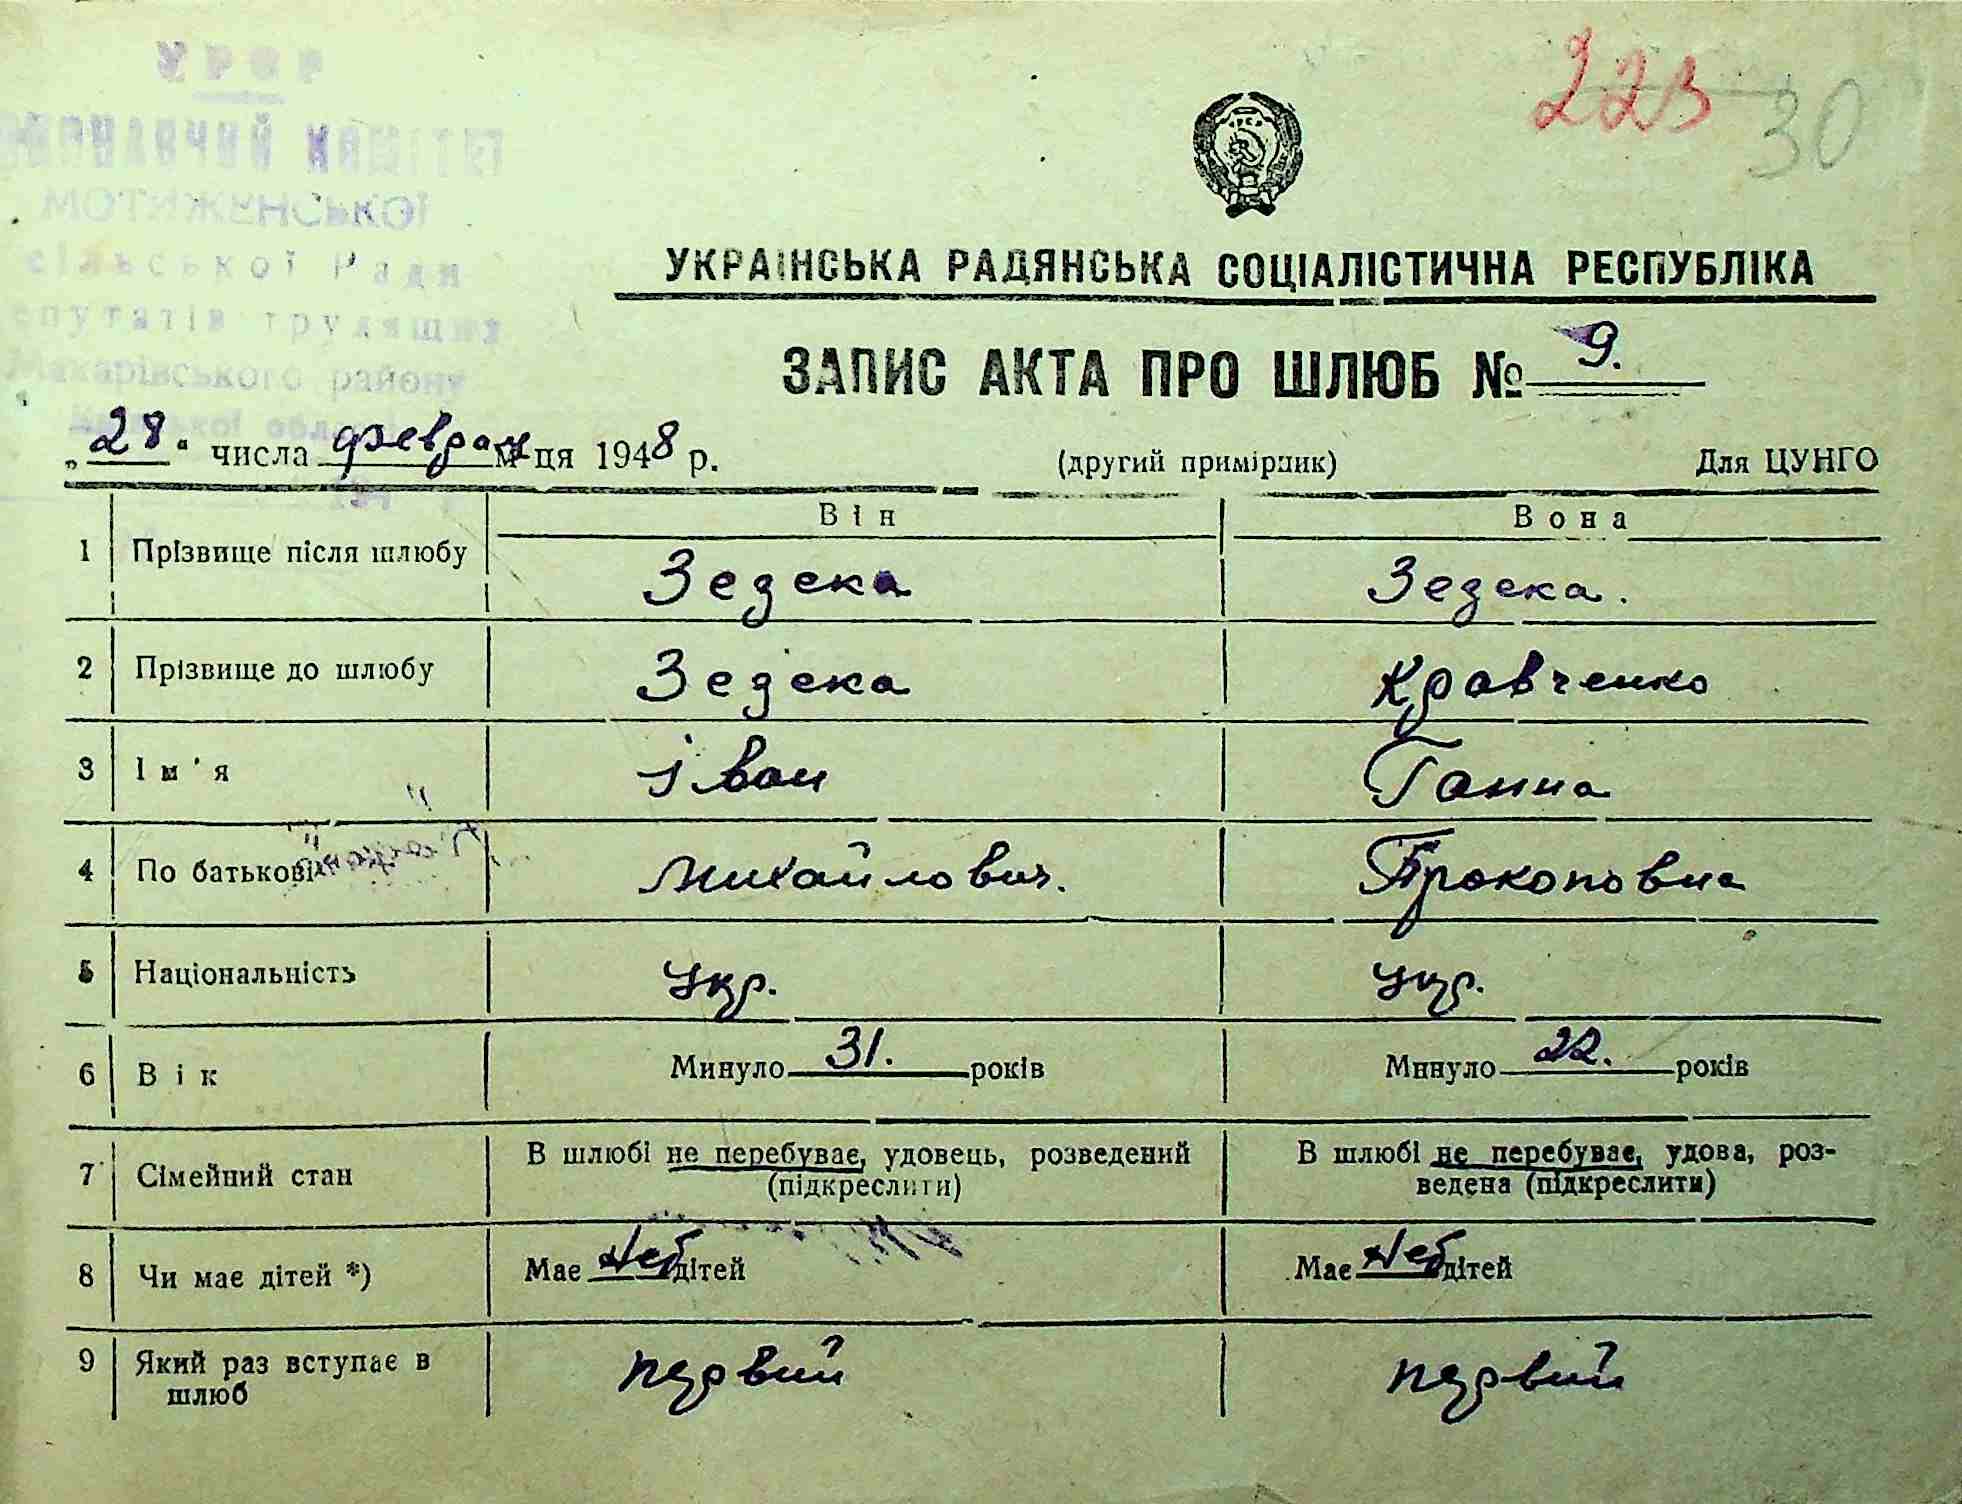 УРСР
ВИКОНАВЧИЙ КОМІТЕТ
МОТИЖЕНСЬКОЇ
сільської Ради
депутатів трудящих
Макарівського району
Київської області
223 30
УКРАЇНСЬКА РАДЯНСЬКА СОЦІАЛІСТИЧНА РЕСПУБЛІКА
ЗАПИС АКТА ПРО ШЛЮБ № 9.
„28“ числа феврал м-ця 1948 р. (другий примірник) Для ЦУНГО
Він Вона
1 Прізвище після шлюбу Зезека Зезека.
2 Прізвище до шлюбу Зезека Кравченко
3 Ім'я Іван Ганна
4 По батькові Михайлович. Прокоповна
5 Національність укр. укр.
6 Вік Минуло 31. років Минуло 22. років
7 Сімейний стан В шлюбі не перебуває, удовець, розведений В шлюбі не перебуває, удова, роз-
(підкреслити) ведена (підкреслити)
8 Чи має дітей *) Має дітей Має дітей
9 Який раз вступає в первий первий
шлюб